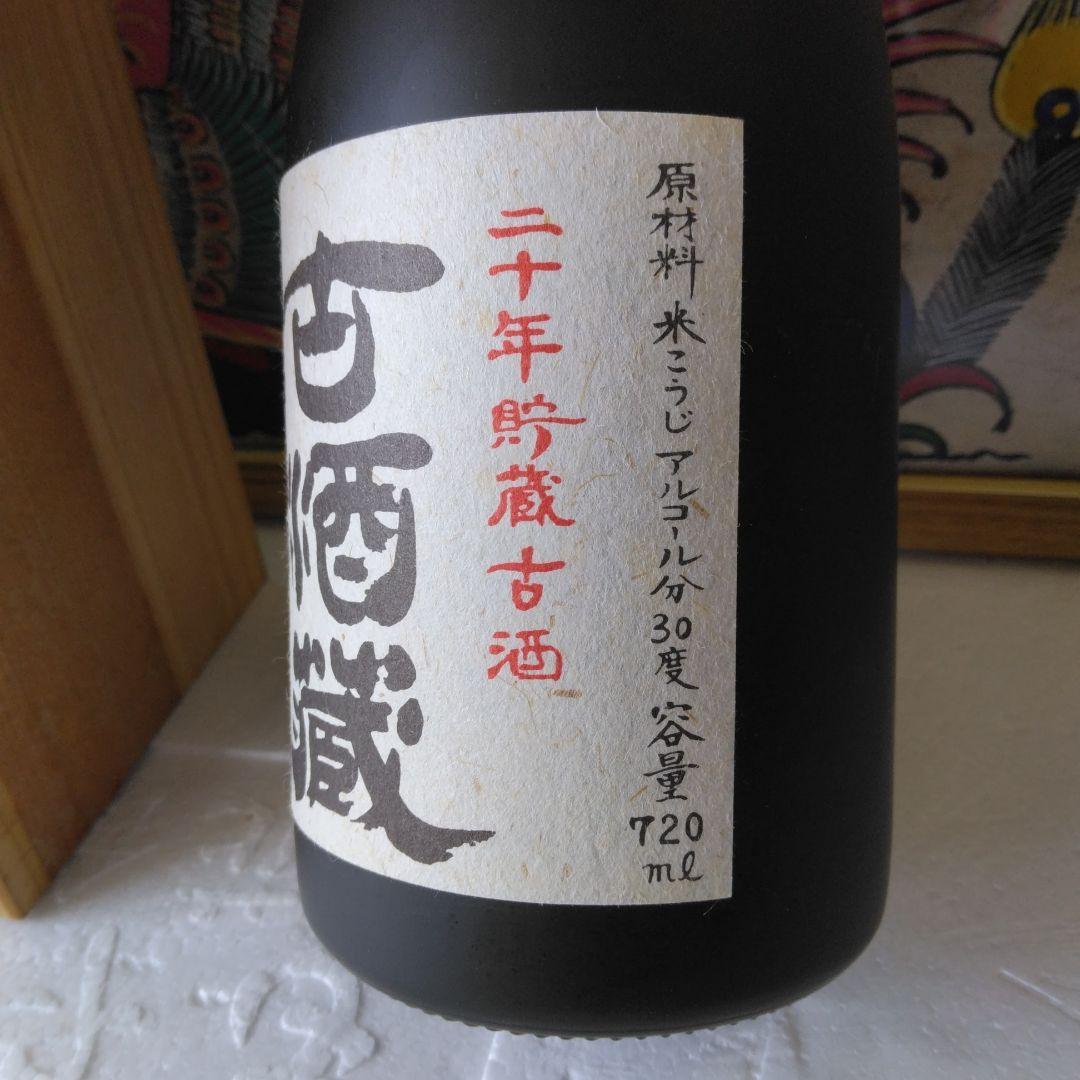 原材料 米こうじ アルコール分30度 容量720ml
二十年貯蔵古酒
古酒蔵